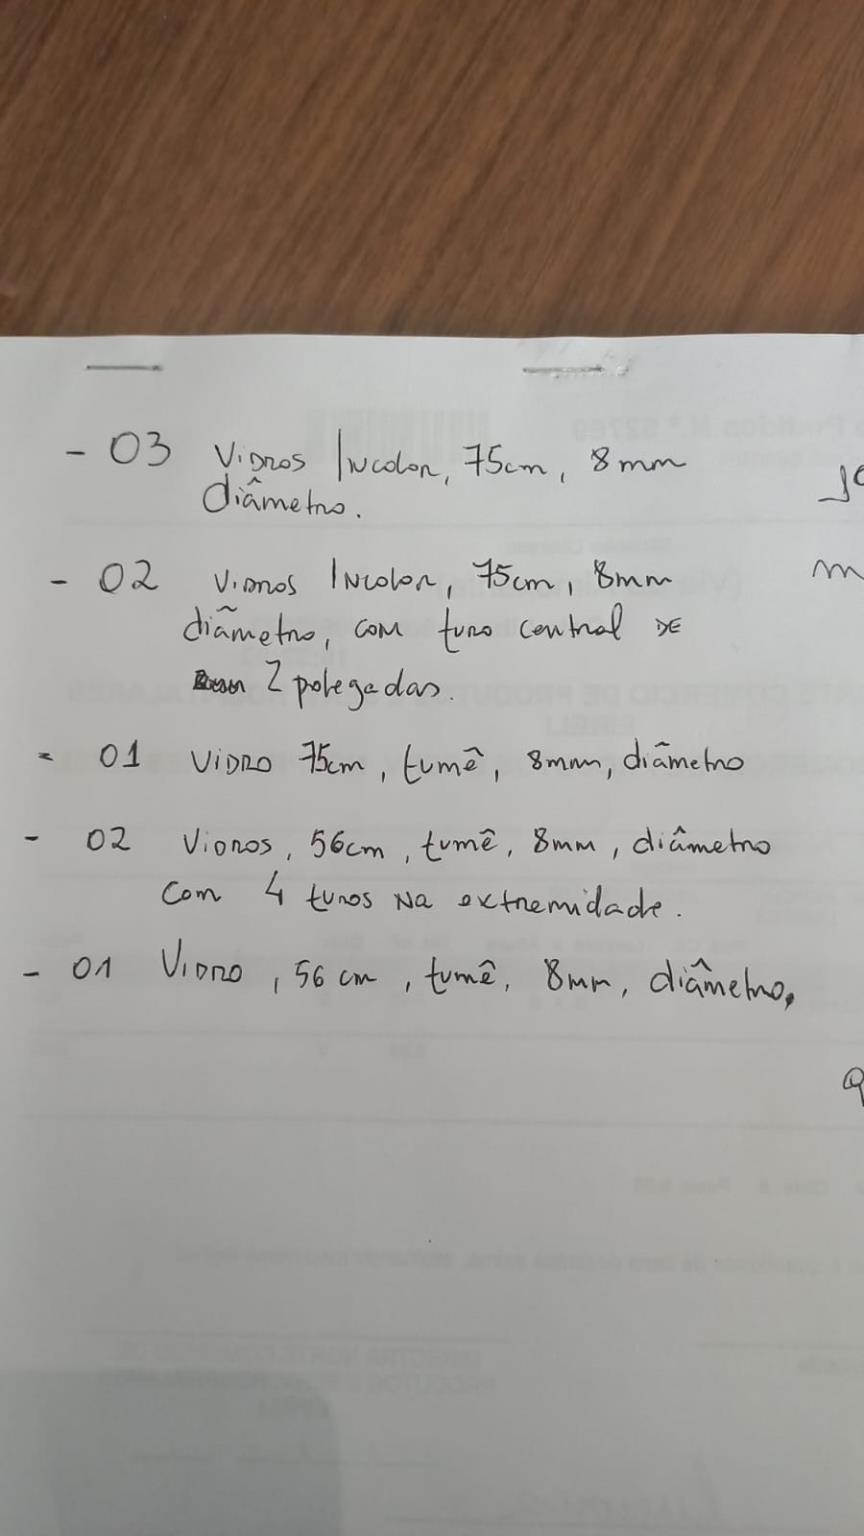 - 03 Vidros Incolor, 75cm, 8mm
diâmetro.
- 02 Vidros Incolor, 75cm, 8mm
diâmetro, com furo central de
2 polegadas.
- 01 Vidro 75cm, fumê, 8mm, diâmetro
- 02 Vidros, 56cm, fumê, 8mm, diâmetro
com 4 furos na extremidade.
- 01 Vidro, 56cm, fumê, 8mm, diâmetro.